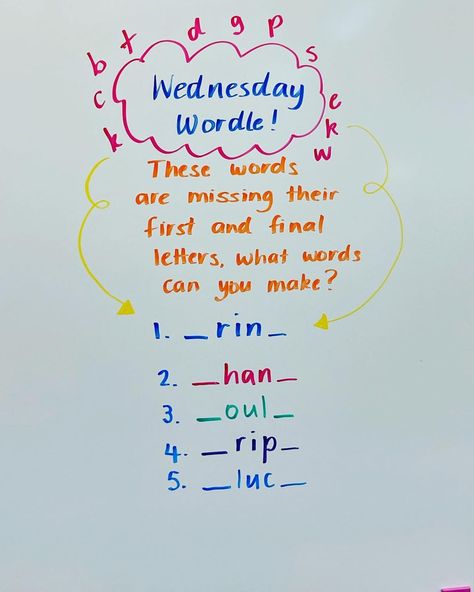 d g p
t s
b
c e
k k
w
Wednesday
Wordle!
These words
are missing their
first and final
letters, what words
can you make?
1. _rin_
2. _han_
3. _oul_
4. _rip_
5. _luc_